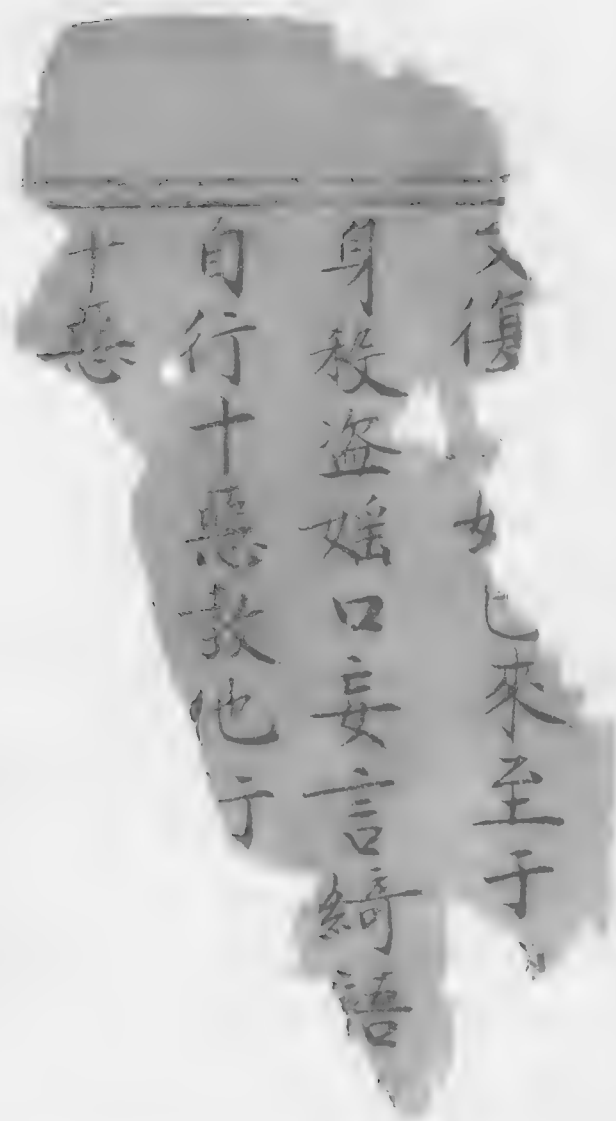 又復已來至于
身殺盜婬口妄言綺語
自行十惡教他行
十惡